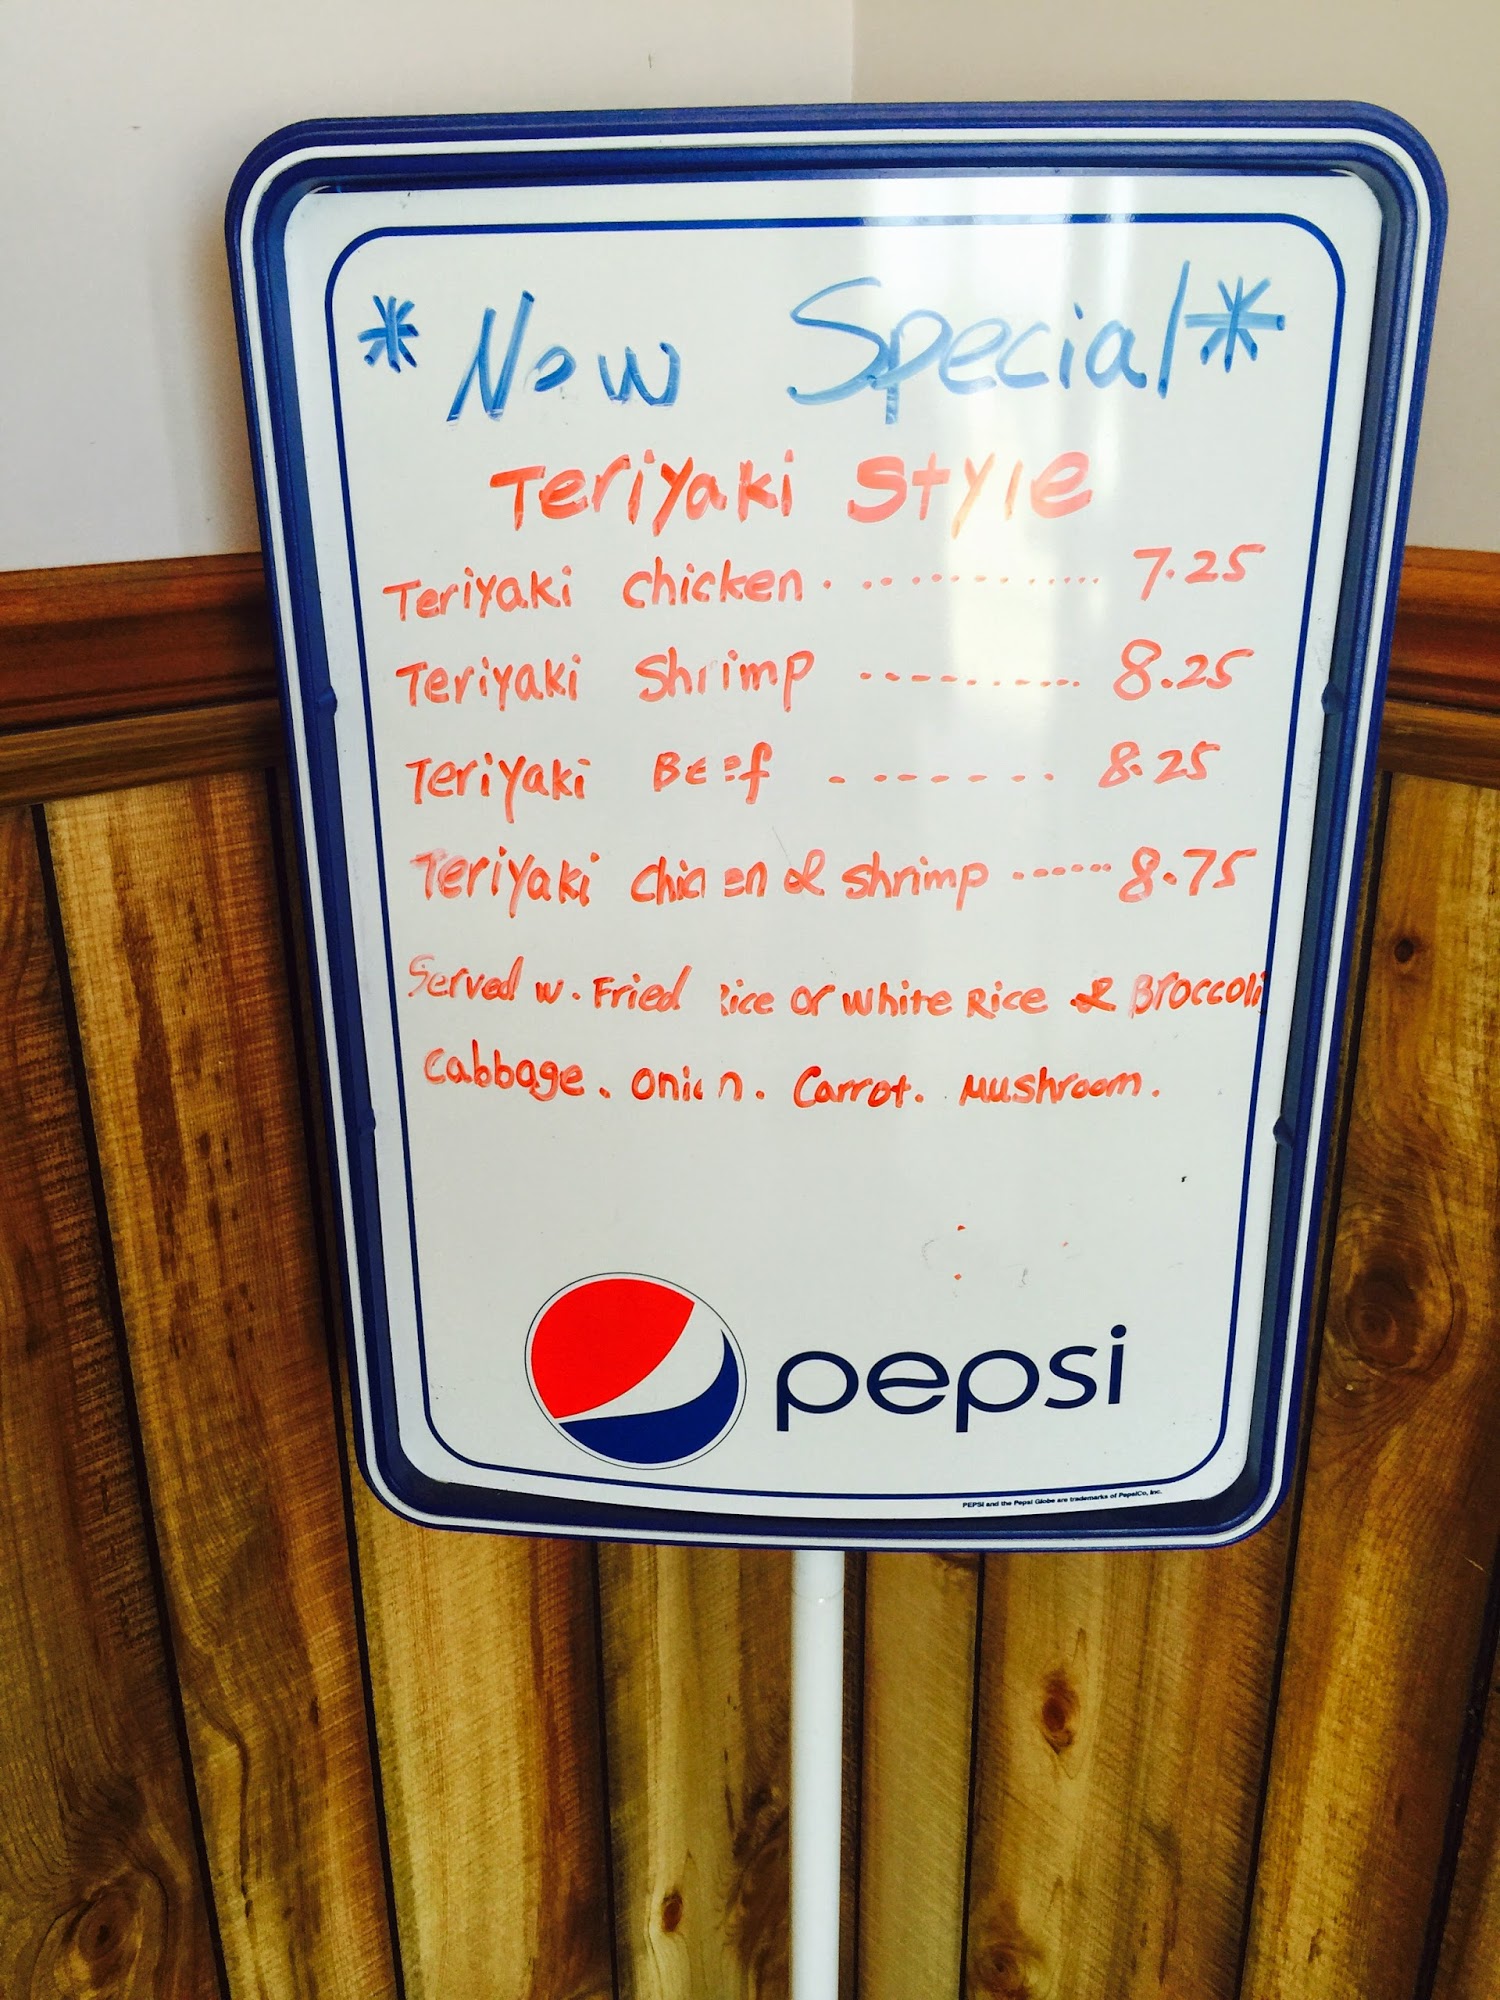 * New Special *
Teriyaki Style
Teriyaki chicken . ............... 7.25
Teriyaki Shrimp .......... 8.25
Teriyaki Beef ....... 8.25
Teriyaki chicken & shrimp ...... 8.75
Served w. Fried Rice or white Rice & Broccoli
Cabbage. onion. Carrot. Mushroom.
pepsi
PEPSI and the Pepsi Globe are trademarks of PepsiCo, Inc.